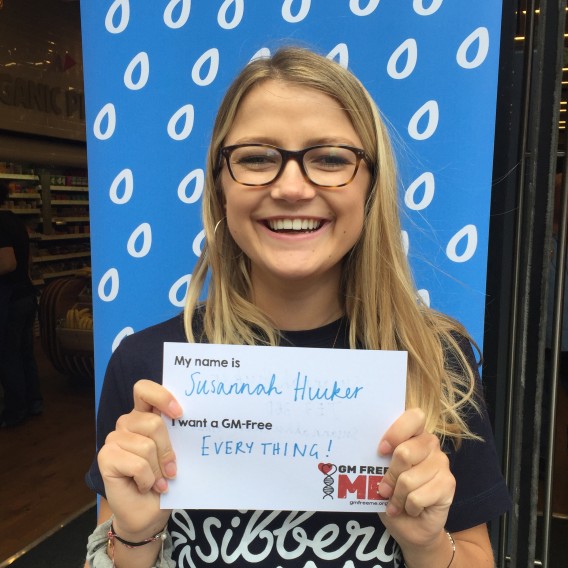 GANIC P
My name is
Susannah Hucker
I want a GM-Free
EVERYTHING!
GM FREE
ME
gmfreeme.org
Sibberi